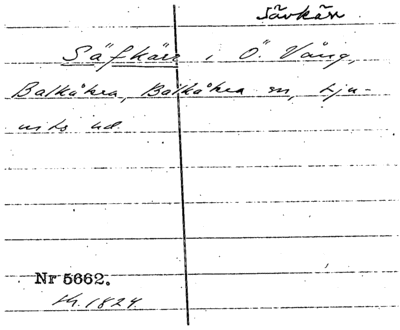 Sävkärr
Säfkärr i Ö. Vång,
Balkåkra, Balkåkra sn, Lju-
nits hd.
Nr 5662.
1824